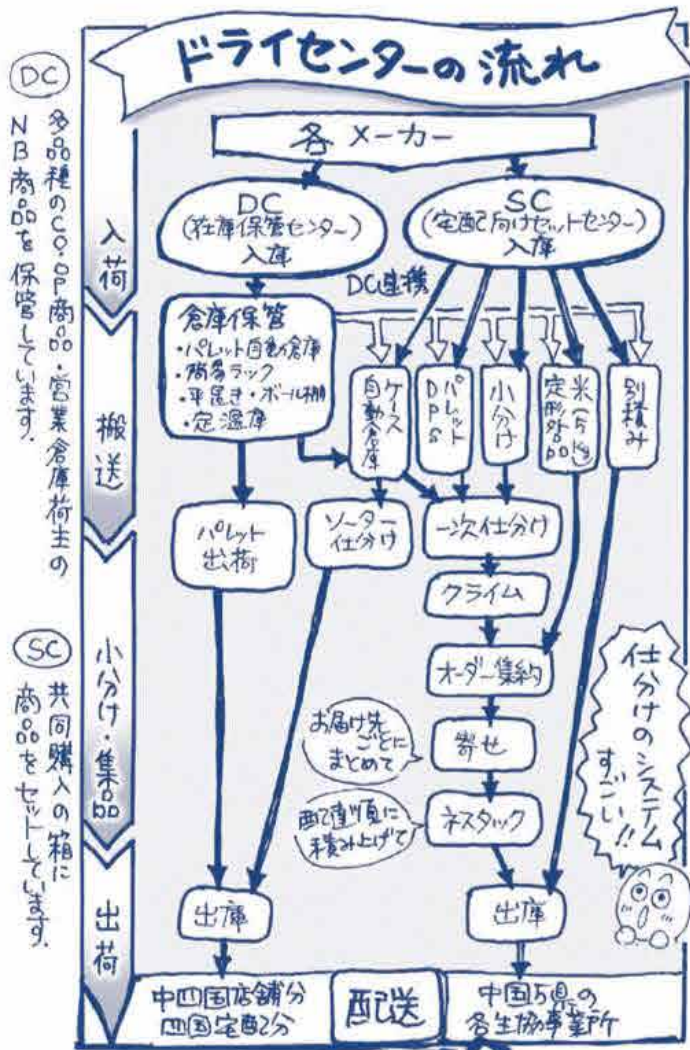 ドライセンターの流れ
DC
多品種のCO・OP商品・営業倉庫荷主の
NB商品を保管しています.
SC
共同購入の箱に
商品をセットしています.
入荷
搬送
小分け・集品
出荷
各メーカー
DC
(在庫保管センター)
入庫
SC
(宅配向けセットセンター)
入庫
DC連携
倉庫保管
・パレット自動倉庫
・簡易ラック
・平置き・ボール棚
・定温庫
ケース
自動倉庫
パレット
DPS
小分け
米(5kg)
定形外品
別積み
パレット
出荷
ソーター
仕分け
一次仕分け
クライム
オーダー集約
お届け先
ごとに
まとめて
寄せ
配達順に
積み上げて
ネスタック
仕分けのシステム
すごい!!
出庫
出庫
中四国店舗分
四国宅配分
配送
中国5県の
各生協事業所